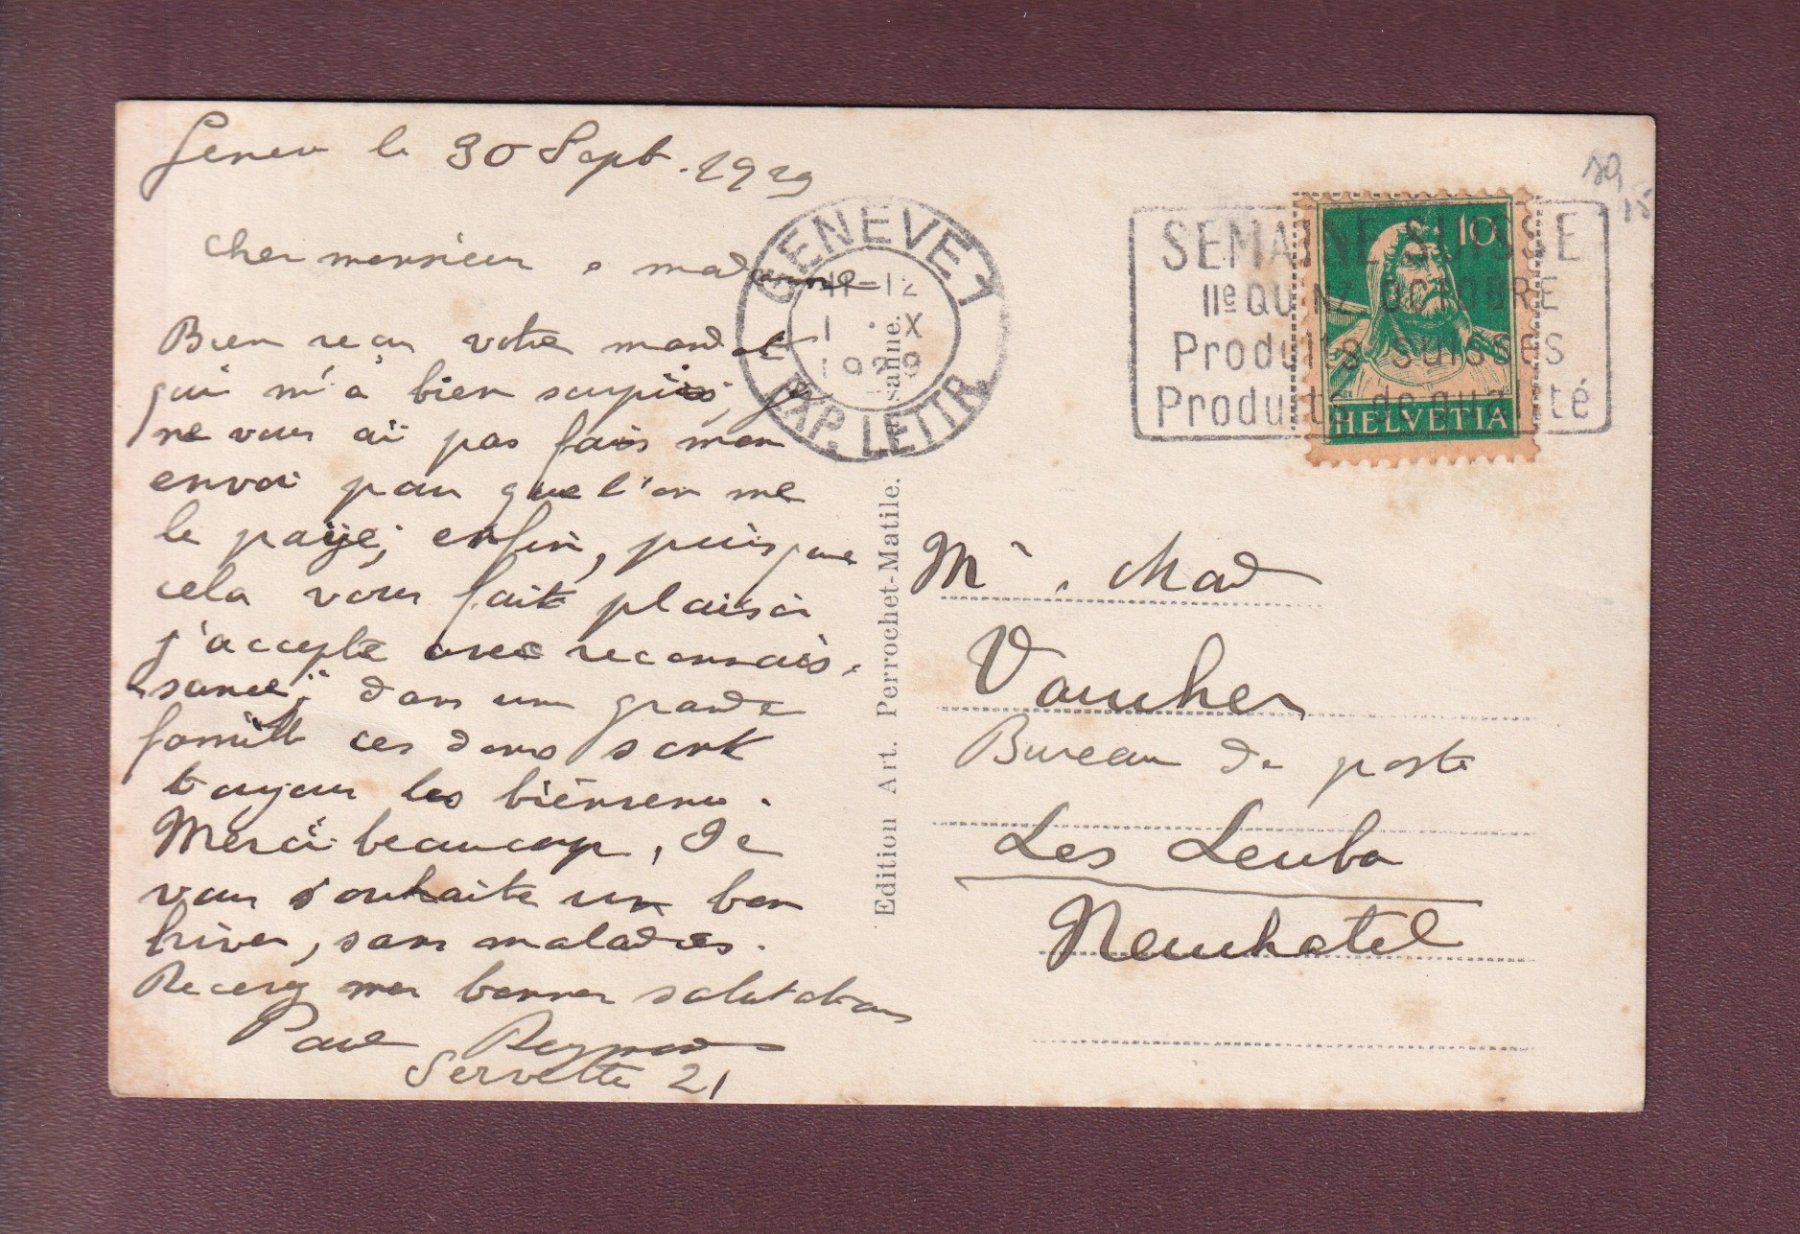 Geneve le 30 Sept. 1929
cher monsieur e madame
Bien reçu votre mandat
qui m'a bien surpris, je
ne vous ai pas fais mon
envoi pour que l'on me
le paye; enfin, puisque
cela vous fait plaisir
j'accepte avec reconnais-
sance; dans une grande
famille ces dons sont
toujours les bienvenu.
Merci beaucoup, Je
vous souhaite un bon
hiver, sans maladies.
Recevez mes bonnes salutations
Paul
Servette 21
GENÈVE 1
11-12
1 . X
1929
EXP. LETTR.
SEMAINE SUISSE
IIe QUINZ. OCTOBRE
Produits suisses
Produits de qualité
10
HELVETIA
Edition Art. Perrochet-Matile. Lausanne.
Mr. Mad
Vaucher
Bureau de poste
Les Leuba
Neuchatel